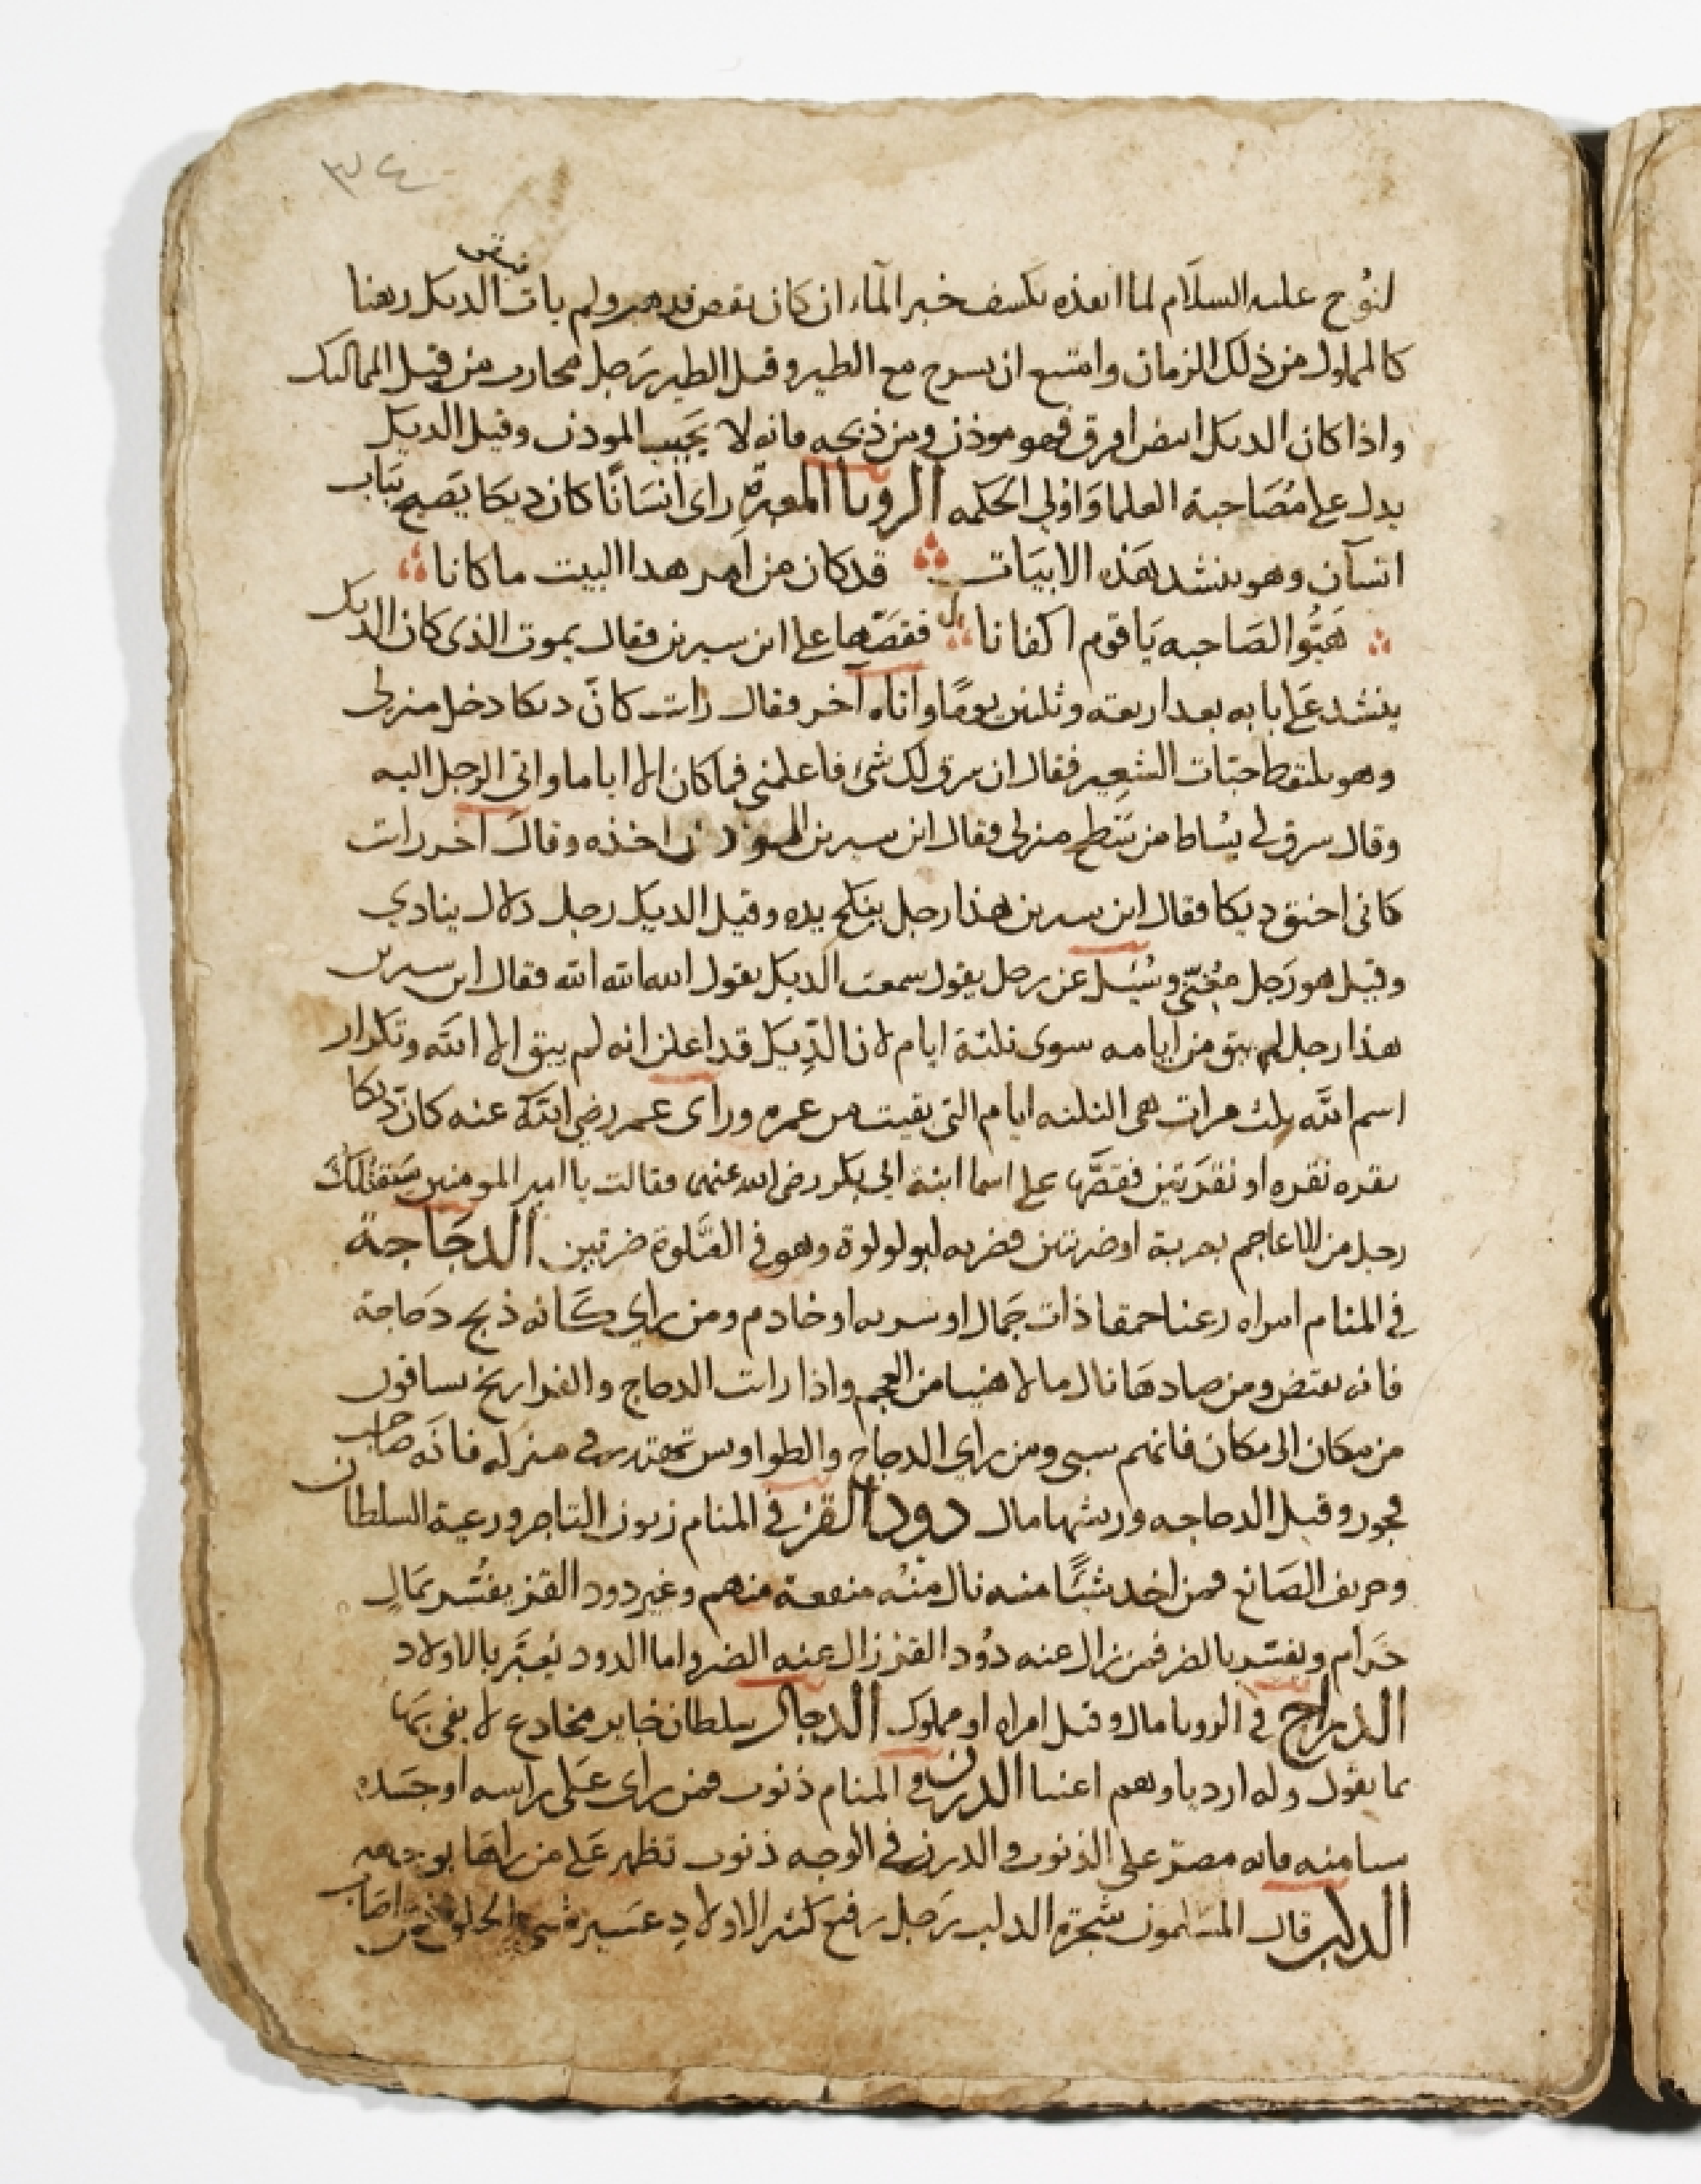 ٣٤
لنوح عليه السلام لما انفذه يكشف خبر الماء ان كان نقص فغدر ولم يات الديك رهنا
كالمملوك من ذلك الزمان وامتنع ان يسرح مع الطير وقيل الطير رجل محارب من قبل المماليك
واذا كان الديك ابيض افرق فهو موذن ومن ذبحه فانه لا يجيب الموذن وقيل الديك
يدل على مصاحبة العلما واولي الحكمه الرويا المعبرة راى انسانا كان ديكا يصيح بباب
انسان وهو ينشد هذه الابيات قد كان من امر هدا البيت ما كانا
هبوا لصاحبه يا قوم اكفانا فقصها على ابن سيرين فقال يموت الذي كان الديك
ينشد على بابه بعد اربعه وثلثين يوما واتاه آخر فقال رايت كان ديكا دخل منزلي
وهو يلتقط حبات الشعير فقال ان سرق لك شئ فاعلمني فما كان الا اياما واتى الرجل اليه
وقال سرق لي بساط من سطح منزلي فقال ابن سيرين الموذن اخذه وقال آخر رايت
كاني اخنق ديكا فقال ابن سيرين هذا رجل ينكح يده وقيل الديك رجل دلال ينادي
وقيل هو رجل وسئل عن رجل يقول سمعت الديك يقول الله الله الله فقال ابن سيرين
هذا رجل لم يبق من ايامه سوى ثلثة ايام لان الديك قد اعلن انه لم يبق الا الله وتكرار
اسم الله ثلث مرات هي الثلثه ايام التي بقيت من عمره وراى عمر رضي الله عنه كان ديكا
نقره نقره او نقرتين فقصها على اسما ابنة ابي بكر رضي الله عنهما فقالت يا امير المومنين سيقتلك
رجل من الاعاجم بحربة او ضربتين فضربه ابو لولوة وهو في الصلوة ضربتين الدجاجة
في المنام امراه رعنا حمقا ذات جمال او سريه او خادم ومن راي كانه ذبح دجاجة
فانه يفتض ومن صادها نال مالا هنيا من العجم واذا رايت الدجاج والفراريخ يساقون
من مكان الى مكان فانهم سبي ومن راي الدجاج والطواويس تهتدر في منزله فانه صاحب
فجور وقيل الدجاجه وريشها مال دود القز في المنام زبون التاجر ورعية السلطان
وحريف الصانع فمن اخد شيئا منه نال منه منفعة منهم وغير دود القز يفسر بمال
حرام ويفسر بالضر فمن زال عنه دود القز زال عنه الضر واما الدود يعبر بالاولاد
الدراج في الرويا مال وقيل امراه او مملوك الدجال سلطان جاير مخادع لا يفي
بما يقول وله اردياوهم اغنيا الدرن في المنام ذنوب فمن راى على راسه او جسده
سيا منه فانه مصر على الذنوب والدرن في الوجه ذنوب تظهر على من راها بوجهه
الدلب قال المسلمون شجرة الدلب رجل رفيع كثير الاولاد